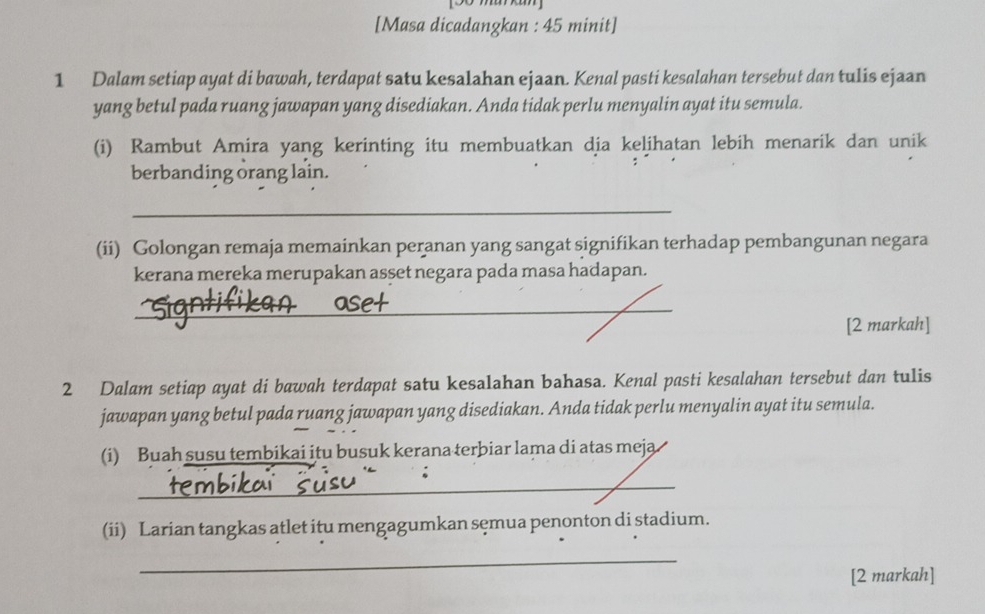 [Masa dicadangkan : 45 minit]
1 Dalam setiap ayat di bawah, terdapat satu kesalahan ejaan. Kenal pasti kesalahan tersebut dan tulis ejaan
yang betul pada ruang jawapan yang disediakan. Anda tidak perlu menyalin ayat itu semula.
(i) Rambut Amira yang kerinting itu membuatkan dia kelihatan lebih menarik dan unik
berbanding orang lain.
(ii) Golongan remaja memainkan peranan yang sangat signifikan terhadap pembangunan negara
kerana mereka merupakan asset negara pada masa hadapan.
aset
[2 markah]
2 Dalam setiap ayat di bawah terdapat satu kesalahan bahasa. Kenal pasti kesalahan tersebut dan tulis
jawapan yang betul pada ruang jawapan yang disediakan. Anda tidak perlu menyalin ayat itu semula.
(i) Buah susu tembikai itu busuk kerana terbiar lama di atas meja.
tembikai susu
(ii) Larian tangkas atlet itu mengagumkan semua penonton di stadium.
[2 markah]